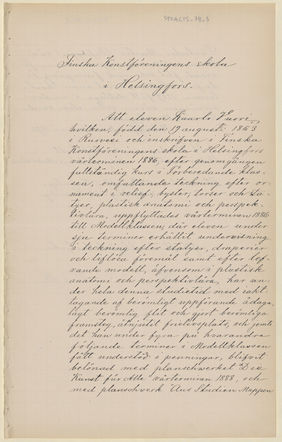 Finska Konstföreningens skola
i Helsingfors.
Att eleven Kaarlo Vuori,
hvilken, född den 19 augusti 1863
i Rusvesi och inskrifven i Finska
Konstföreningens skola i Helsingfors
vårterminen 1886, efter genomgången
fullständig kurs i Förberedande klas-
sen, omfattande teckning efter or-
nament i relief, byster, torser och sta-
tyer, plastisk anatomi och perspek-
tivlära, uppflyttades vårterminen 1886
till Modellklassen, där eleven under
sju terminer erhållit undervisning
i teckning efter statyer, draperier
och liflösa föremål samt efter lef-
vande modell, äfvensom i plastisk
anatomi och perspektivlära, har un-
der hela denna studietid med iakt-
tagande af berömligt uppförande ådaga-
lagt berömlig flit och gjort berömliga
framsteg, åtnjutit frielevsplats och jemte
det han under fyra på hvarandra
följande terminer i Modellklassen
fått understöd i penningar, blifvit
belönad med planschverket Die
Kunst für Alle vårterminen 1888, och
med planschverk Aus Studien Mappen